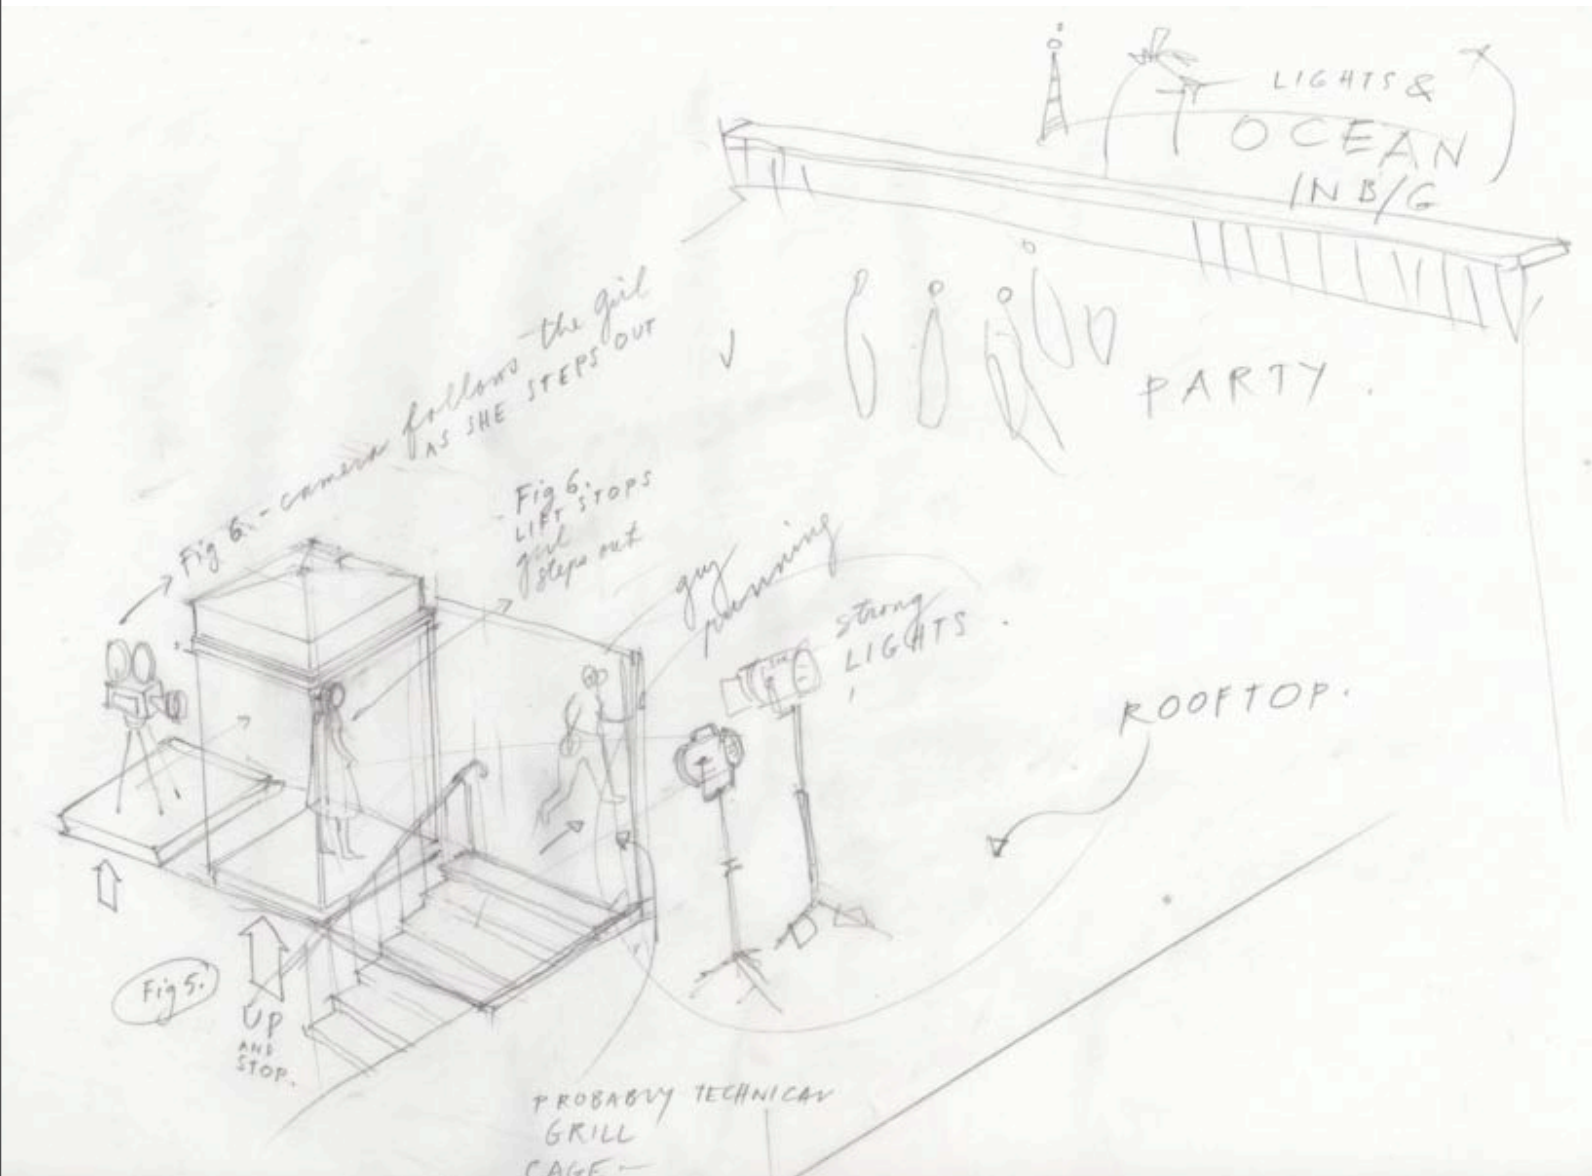 LIGHTS &
OCEAN
IN B/G
Fig 6. - camera follows the girl
AS SHE STEPS OUT
PARTY.
Fig 6.
LIFT STOPS
girl
steps out
guy
running
strong
LIGHTS.
ROOFTOP.
Fig 5.
UP
AND
STOP.
PROBABLY TECHNICAL
GRILL
CAGE -